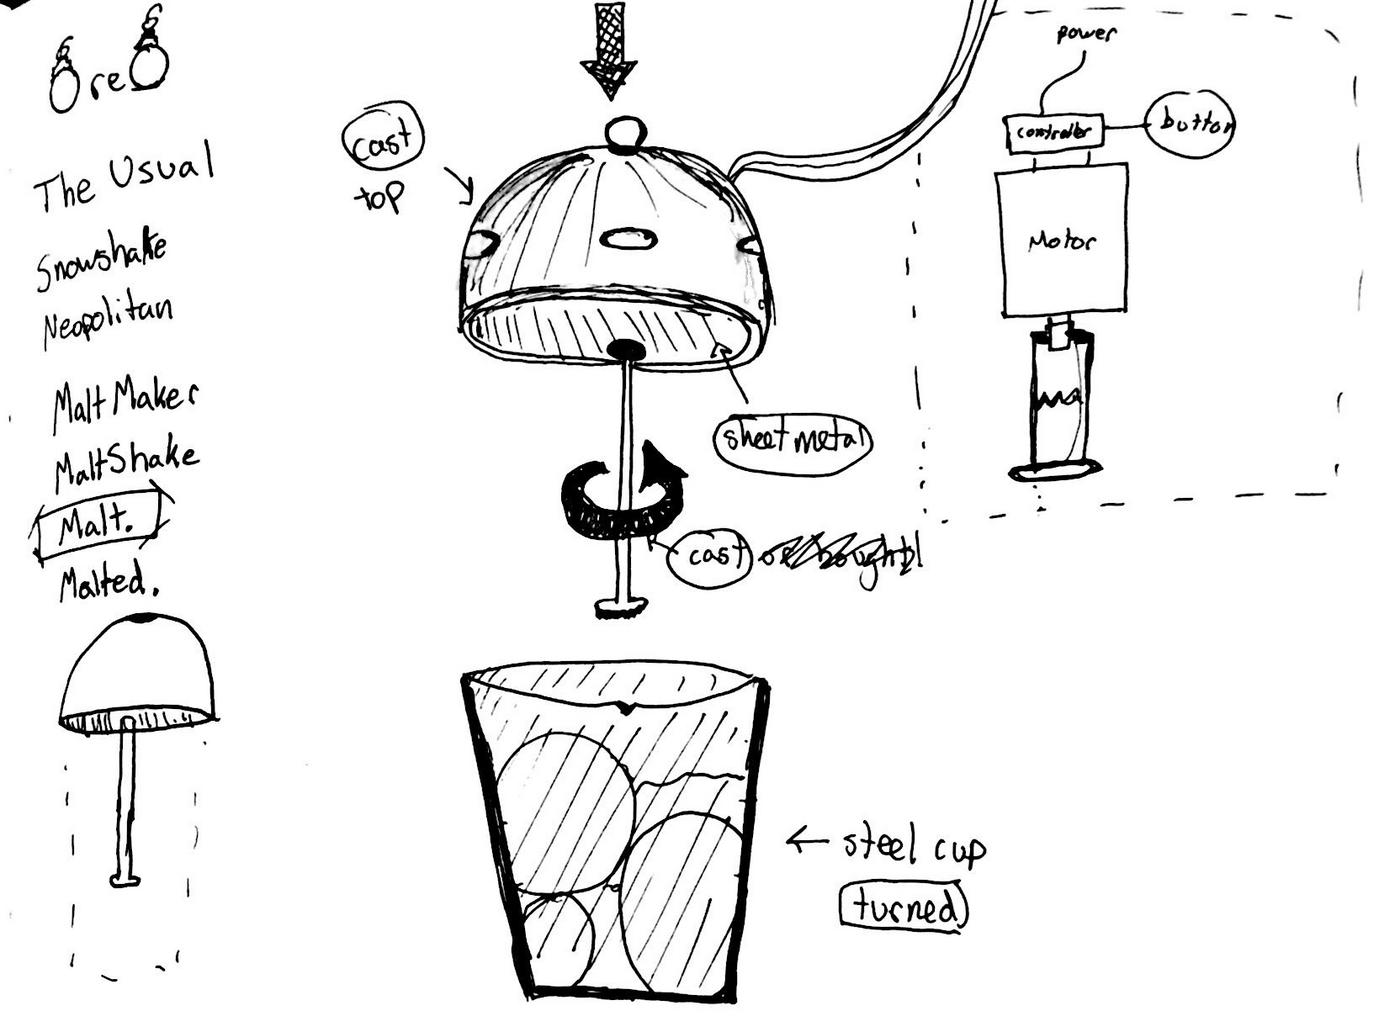 OreO
The Usual
Snowshake
Neopolitan
Malt Maker
MaltShake
Malt.
Malted.
cast
top
sheet metal
cast or bought!
steel cup
turned
power
controller
button
Motor